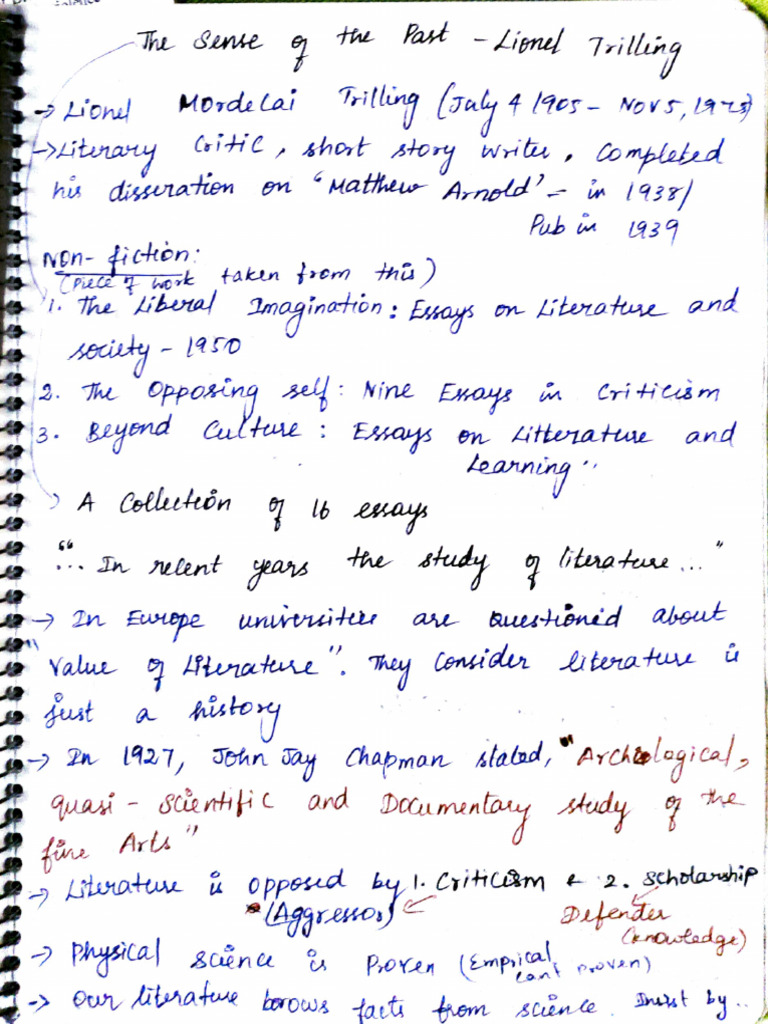 The Sense of the Past - Lionel Trilling
→ Lionel Mordecai Trilling (July 4 1905 - Nov 5, 1975)
→ Literary critic, short story writer. Completed
his disseration on "Matthew Arnold" - in 1938/
Pub in 1939
Non-fiction:
(Piece of work taken from this)
1. The Liberal Imagination: Essays on Literature and
society - 1950
2. The Opposing self: Nine Essays in Criticism
3. Beyond Culture: Essays on Litterature and
Learning"
A Collection of 16 essays
"... In recent years the study of literature..."
→ In Europe universities are questioned about
"Value of Literature". They Consider literature is
just a history
→ In 1927, John Jay Chapman stated, "Archeological,
quasi-scientific and Documentary study of the
fine Arts"
→ Literature is opposed by 1. Criticism & 2. Scholarship
(Aggressor) Defender
(knowledge)
→ Physical science is Proven (Emprical, can't proven)
→ Our literature borows facts from science. Insist by..